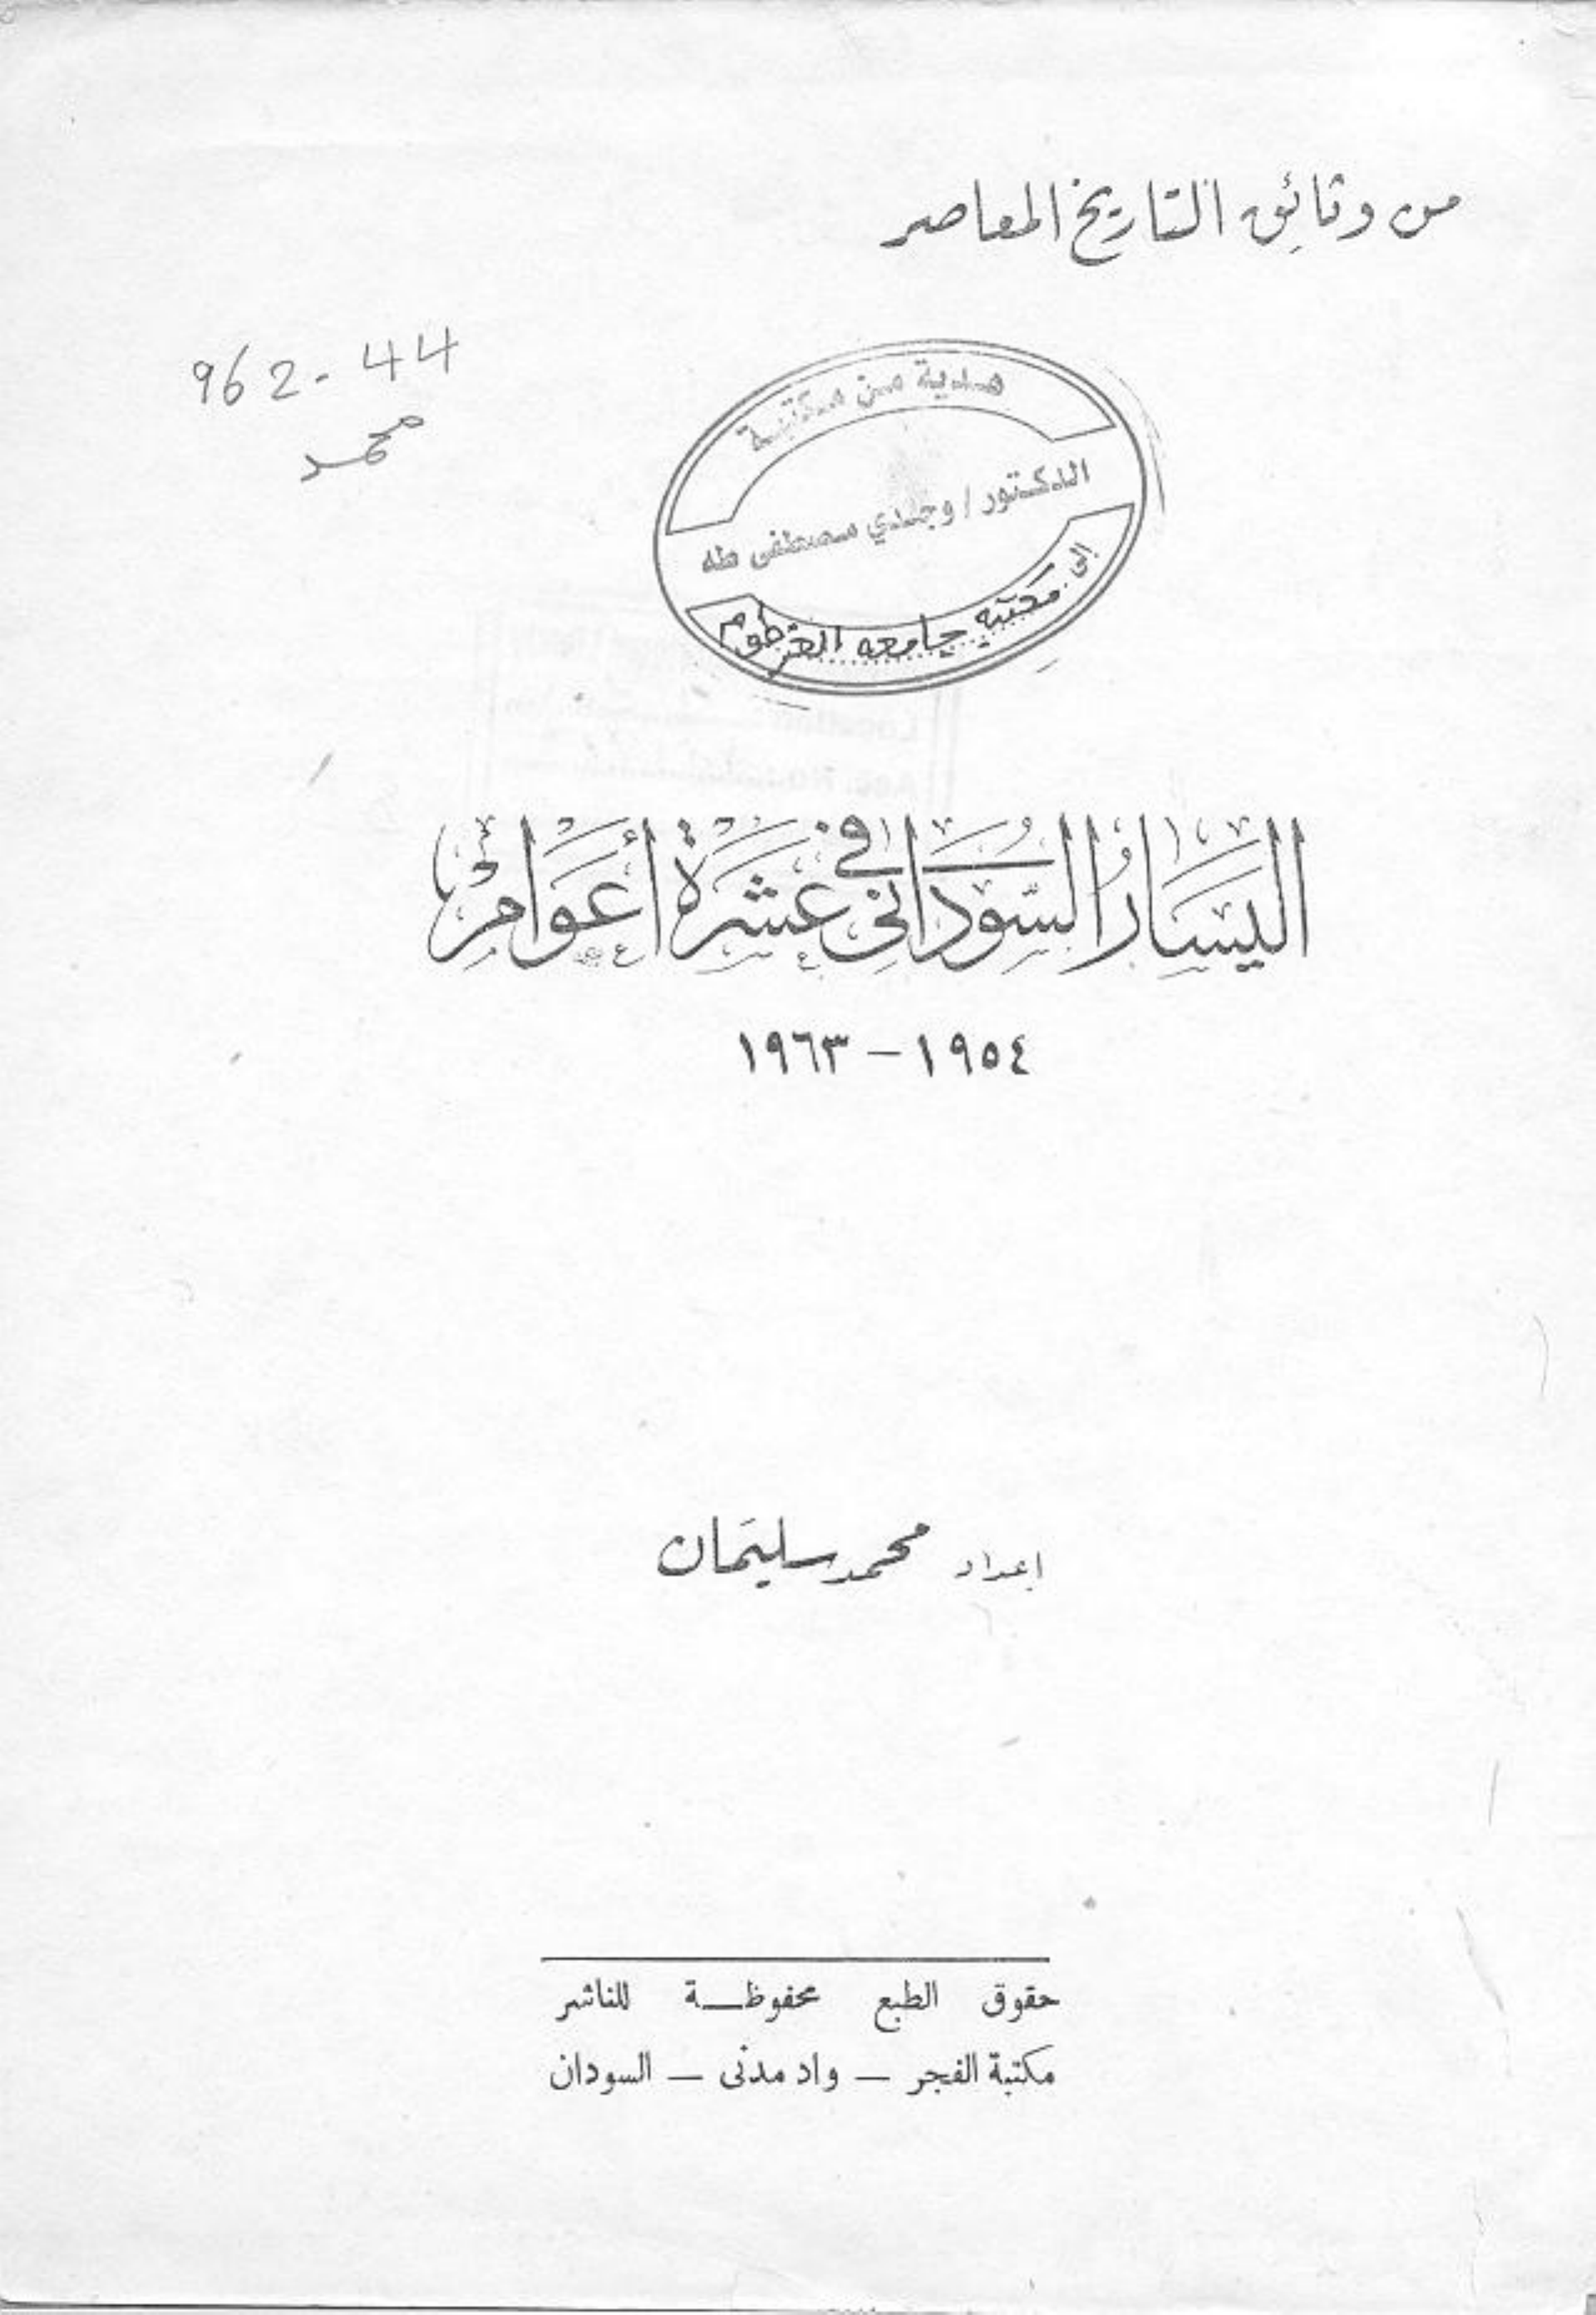 من وثائق التاريخ المعاصر
962-44
محمد
هدية من مكتبة
الدكتور / وجدي مصطفى طه
إلى مكتبه جامعه الخرطوم
اليَسَارُ السّوُدَانى في عَشَرَة أعوَام
١٩٥٤ – ١٩٦٣
إعداد محمد سليمَان
حقوق الطبع محفوظـــة للناشر
مكتبة الفجر – واد مدنى – السودان